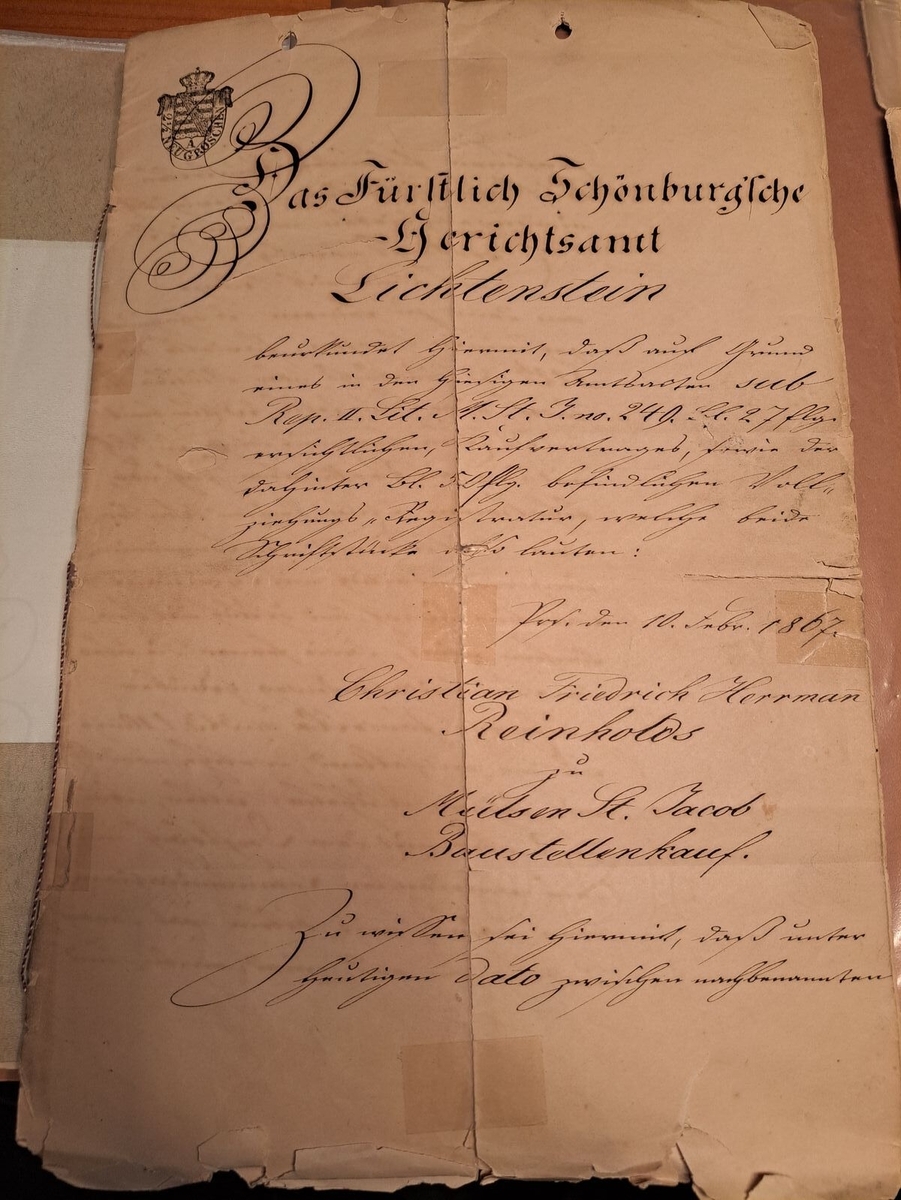 2½ NEUGROSCHEN
A
Das Fürstlich Schönburg'sche
Gerichtsamt
Lichtenstein
beurkundet hiermit, daß auf Grund
eines in den hiesigen Amtsacten sub
Rep. II. Lit. M. St. J. no. 249. Bl. 27 flg.
ersichtlichen Kaufvertrages, sowie der
dahinter Bl. 50 flg. befindlichen Voll„
ziehungs„Registratur, welche beide
Schriftstücke also lauten:
Prs. den 10. Febr. 1867.
Christian Friedrich Herrman
Reinholds
zu
Mülsen St. Jacob
Baustellenkauf.
Zu wissen sei hiermit, daß unter
heutigen dato zwischen nachbenannten